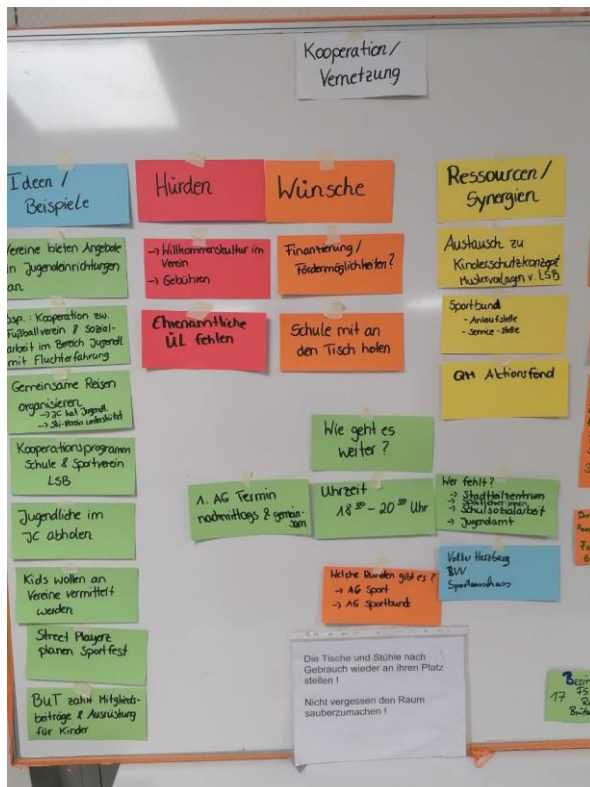 Kooperation/
Vernetzung
Ideen /
Beispiele
Vereine bieten Angebote
in Jugendeinrichtungen
an
bsp.: Kooperation zw.
Fußballverein & Sozial-
arbeit im Bereich Jugendl
mit Fluchterfahrung
Gemeinsame Reisen
organisieren
→ JC hat Jugendl.
→ Ski-Verein unterstützt
Kooperationsprogramm
Schule & Sportverein
LSB
Jugendliche im
JC abholen
Kids wollen an
Vereine vermittelt
werden
Street Playerz
planen Sportfest
BuT zahlt Mitglieds-
beiträge & Ausrüstung
für Kinder
Hürden
→ Willkommenskultur im
Verein
→ Gebühren
Ehrenamtliche
ÜL fehlen
Wünsche
Finanzierung /
Fördermöglichkeiten?
Schule mit an
den Tisch holen
Ressourcen /
Synergien
Austausch zu
Kinderschutzkonzept
Mustervorlagen v. LSB
Sportbund
- Anlaufstelle
- Service-Stelle
QM Aktionsfond
Wie geht es
weiter?
1. AG Termin
nachmittags & gemein-
sam
Uhrzeit
18 30 – 20 00 Uhr
Wer fehlt?
→ Stadtteilzentrum
→ Sportlehrer innen
→ Schulsozialarbeit
→ Jugendamt
Welche Runden gibt es?
→ AG Sport
→ AG Sportbund
Volker Herzberg
BVV
Sportausschuss
Die Tische und Stühle nach
Gebrauch wieder an ihren Platz
stellen !
Nicht vergessen den Raum
sauberzumachen !
17